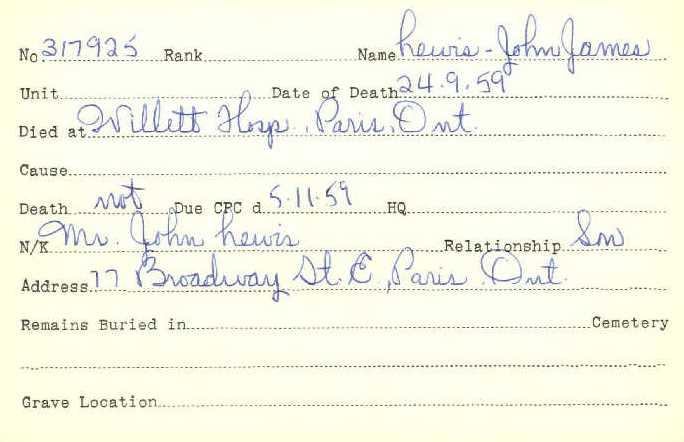 No 317925 Rank Name Lewis - John James
Unit Date of Death 24.9.59
Died at Willett Hosp, Paris, Ont.
Cause
Death not Due CPC d 5.11.59 HQ
N/K Mr. John Lewis Relationship Son
Address 77 Broadway St. E, Paris Ont.
Remains Buried in Cemetery
Grave Location